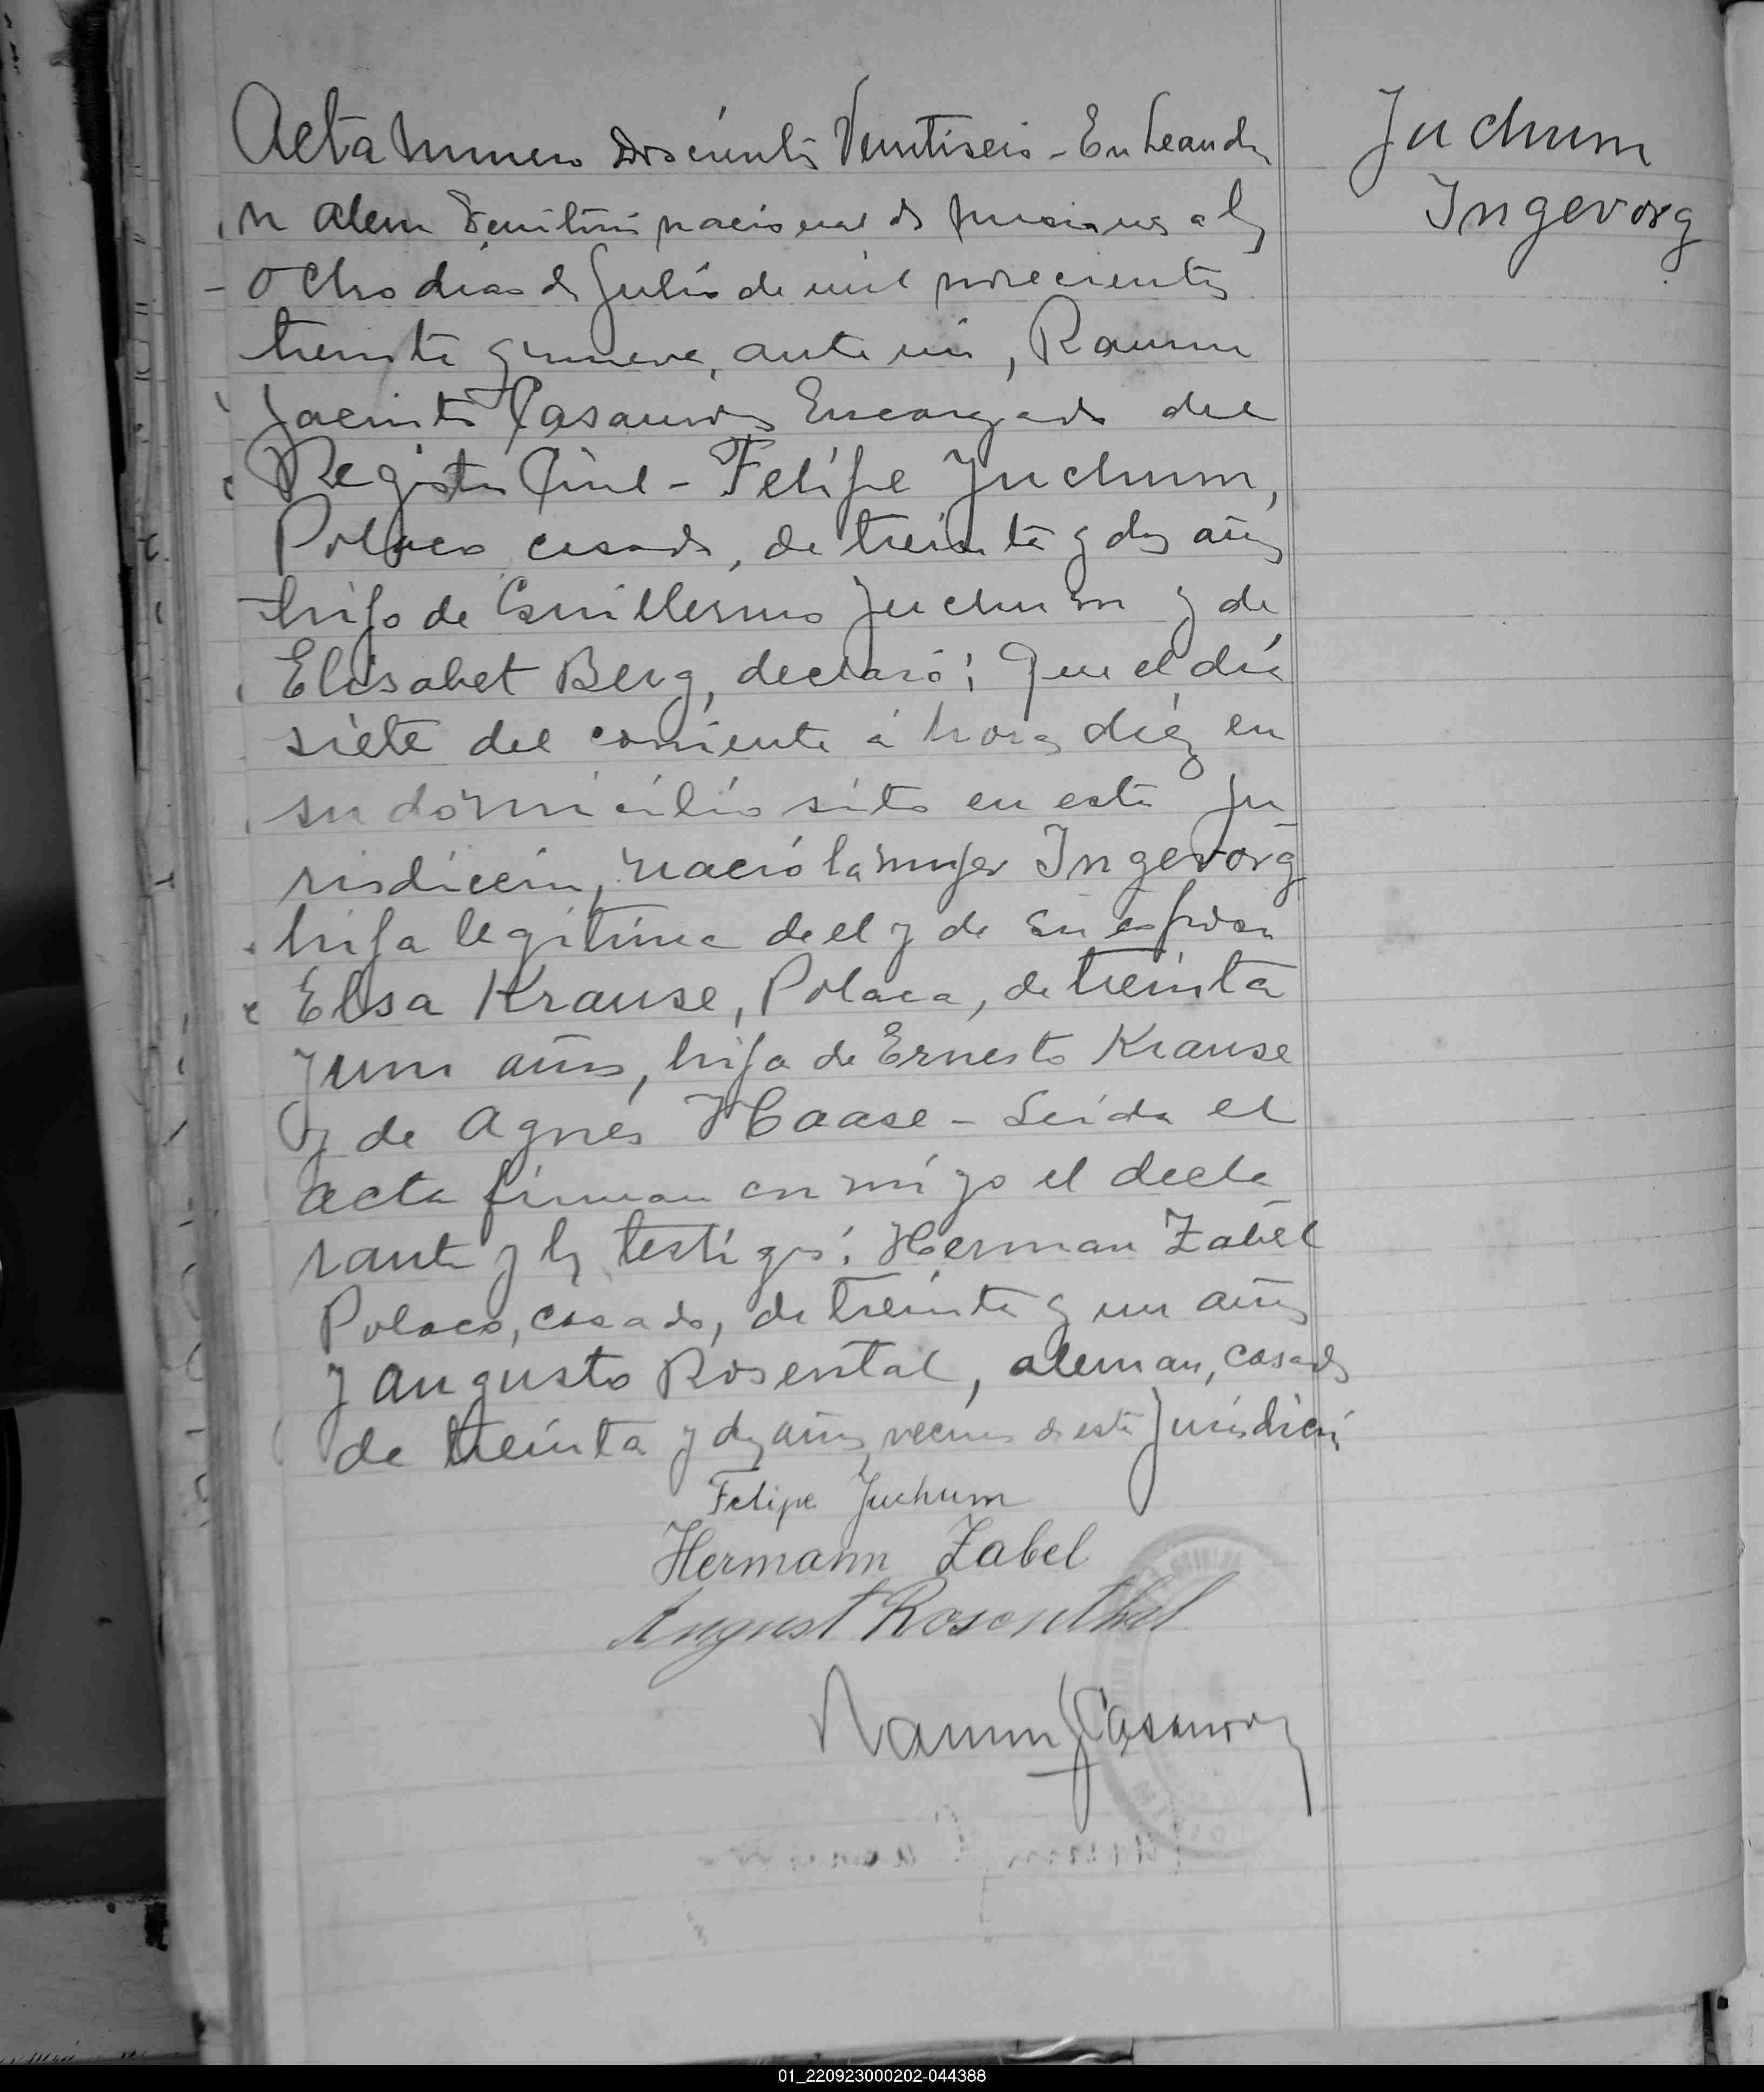 Acta Numero Doscientos Veintiseis - En Leandro
N Alem Territorio nacional de Misiones a los
ocho dias de Julio de mil novecientos
treinta y nueve, ante mi, Ramon
Jacinto Casanova Encargado del
Registro Civil - Felipe Juchum,
Polaco casado, de treinta y dos años
hijo de Guillermo Juchum y de
Elisabet Berg, declaró: Que el día
siete del corriente á horas diéz en
su domicilio sito en esta ju-
risdiccion, nació la mujer Ingevorg
hija legitima de el y de su esposa
Elsa Krause, Polaca, de treinta
y un años, hija de Ernesto Krause
y de Agnes Haase - Leida el
acta firman con migo el decla-
rante y los testigos: Herman Zabel
Polaco, casado, de treinta y un años
y Augusto Rosental, aleman, casado
de treinta y dos años, vecinos de esta Jurisdicción
Juchum
Ingevorg
Felipe Juchum
Hermann Zabel
August Rosenthal
Ramon J Casanova
01_220923000202-044388